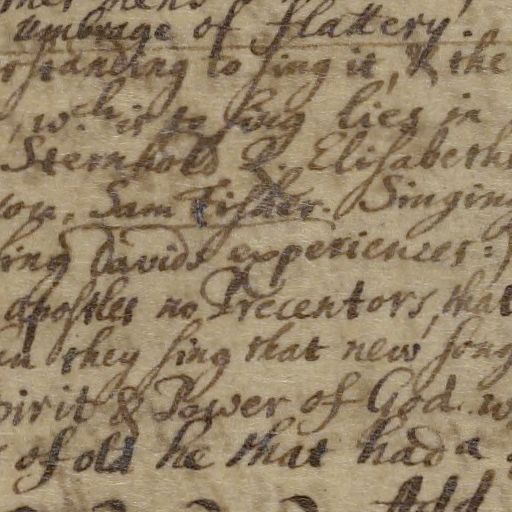 umbrage of flattery.
rstanding to sing it, & the
, wch is to sing lies in
Sternhold Q. Elisabeths
you. Sam Fisher. Singing
ing Davids experiences:
apostles no Precentors, that
they sing that new song
pirit & Power of God. w
of old he that had a
Add